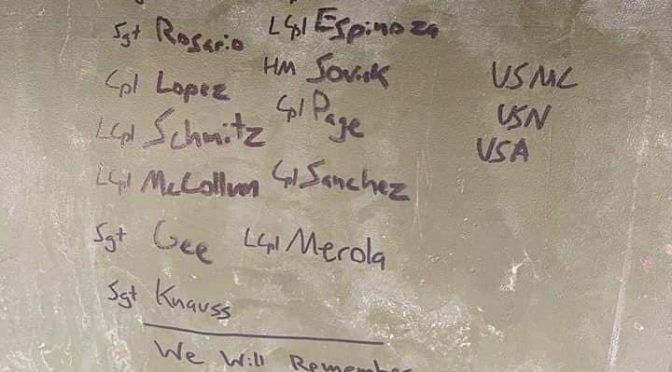 Sgt Rosario LCpl Espinoza
Cpl Lopez HM Soviak USMC
LCpl Schmitz Cpl Page USN
LCpl McCollum Cpl Sanchez USA
Sgt Gee LCpl Merola
Sgt Knauss
We Will Remember